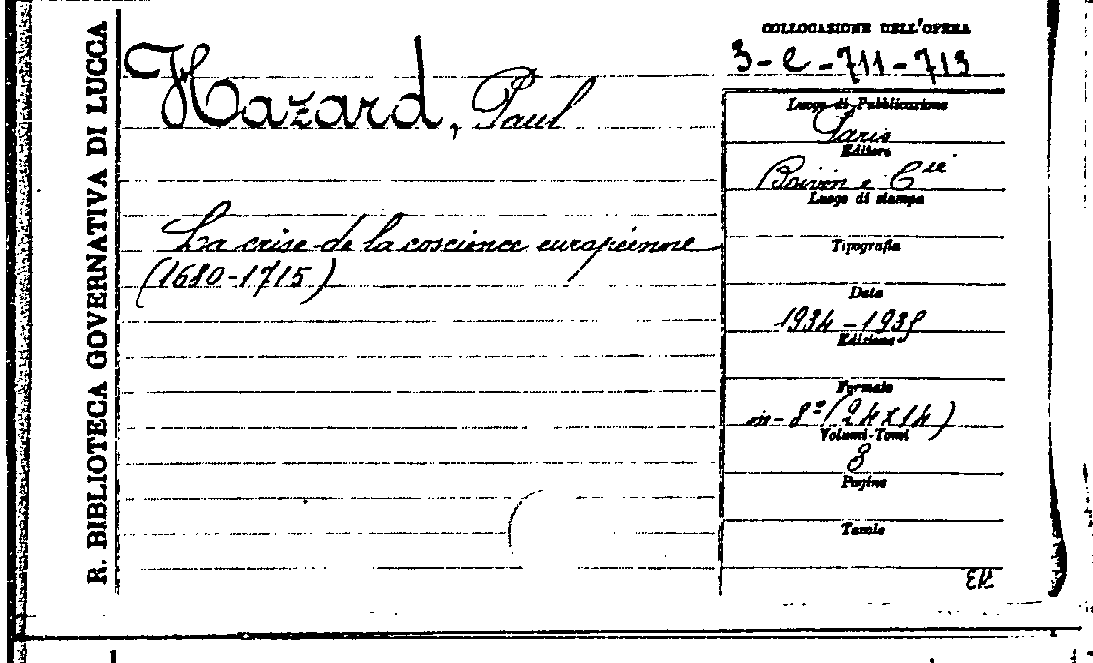 R. BIBLIOTECA GOVERNATIVA DI LUCCA
Hazard, Paul
La crise de la coscience européenne
(1680-1715)
COLLOCAZIONE DELL'OPERA
3-e-711-713
Luogo di Pubblicazione
Paris
Editore
Boivin e C.ie
Luogo di stampa
Tipografia
Data
1934-1935
Edizione
Formato
in-8º (24x14)
Volumi-Tomi
3
Pagine
Tavole